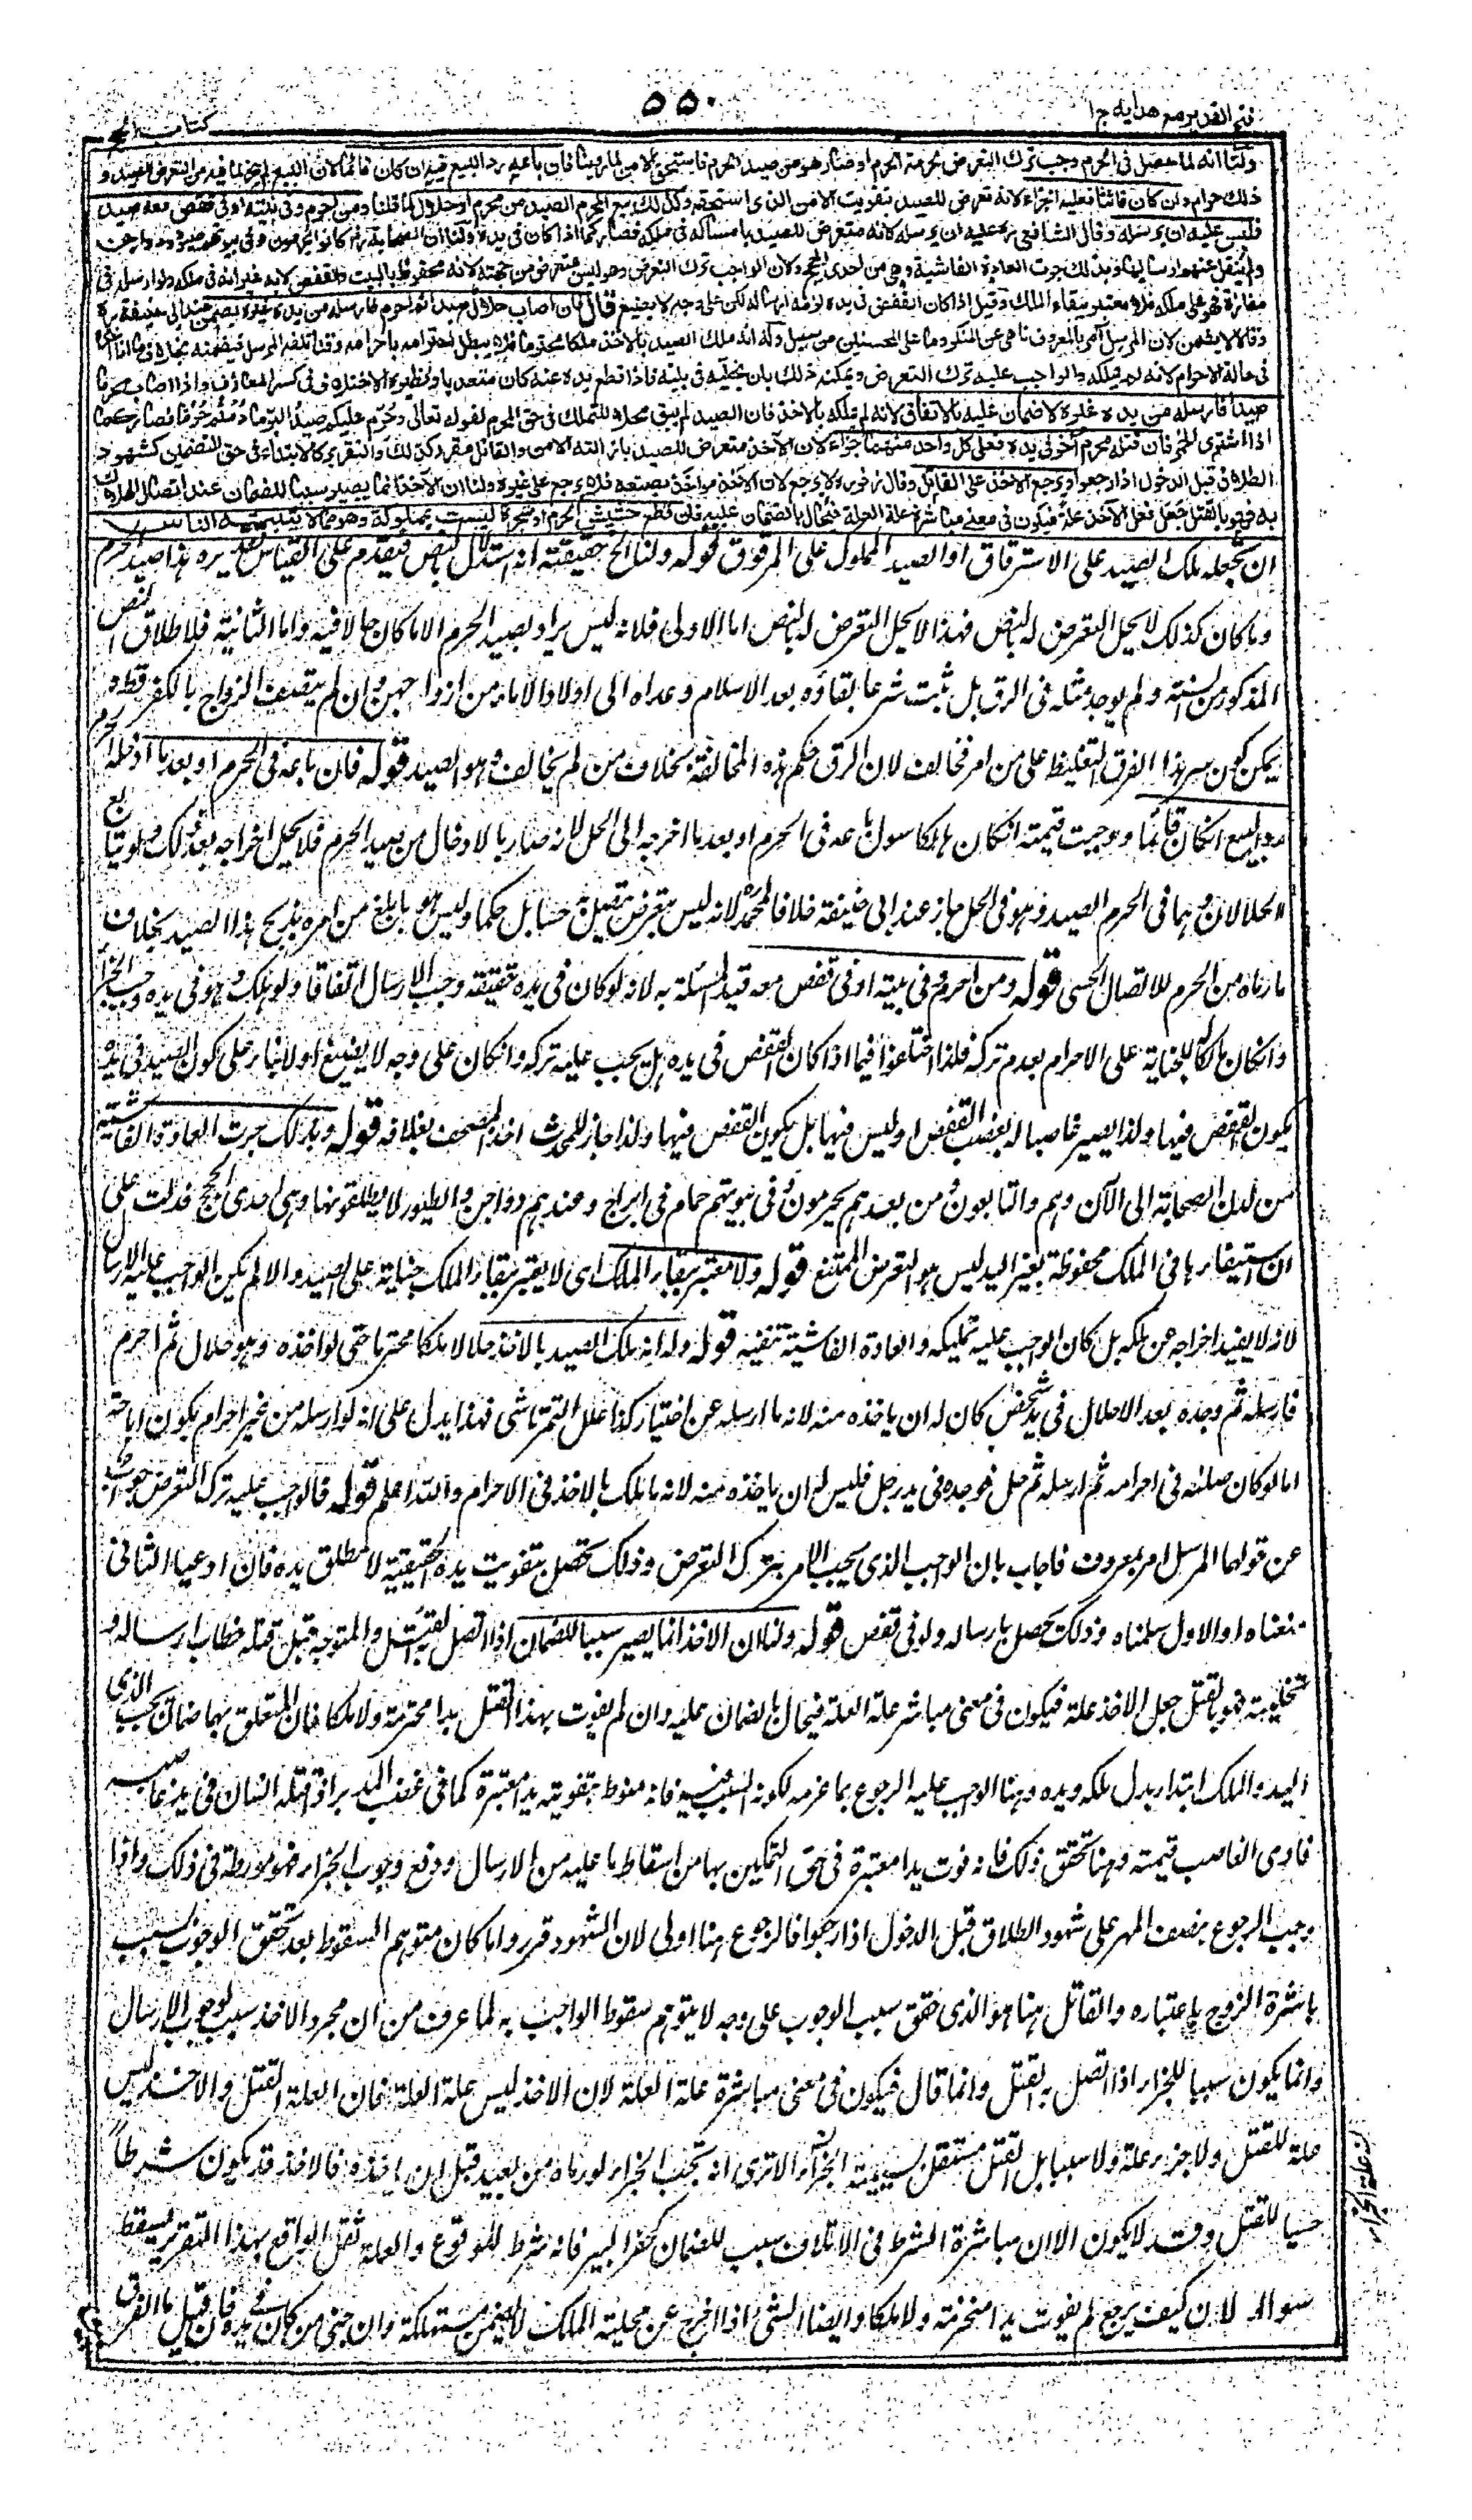 فتح القدير مع هدايه ج ا
٥٥٠
كتاب الحج
ولنا انه لما حصل فى الحرم وجب ترك التعرض لحرمة الحرم اذ صار هو من صيد الحرم فاستحق الامن لما روينا فان باعه رد البيع فيه ان كان قائما لان البيع لم يجز لما فيه من التعرض للصيد و
ذلك حرام وان كان فائتا فعليه الجزاء لانه تعرض للصيد بتفويت الامن الذى استحقه وكذلك بيع المحرم الصيد من محرم او حلال لما قلنا ومن احرم وفى بيته او فى قفص معه صيد
فليس عليه ان يرسله وقال الشافعى يجب عليه ان يرسله لانه متعرض للصيد بامساكه فى ملكه فصار كما اذا كان فى يده ولنا ان الصحابة رض كانوا يحرمون وفى بيوتهم صيود ودواجن
ولم ينقل عنهم ارسالها وبذلك جرت العادة الفاشية وهى من احدى الحجج ولان الواجب ترك التعرض وهو ليس بمتعرض من جهته لانه محفوظ بالبيت والقفص لا به غير انه فى ملكه ولو ارسله فى
مفازة فهو على ملكه فلا معتبر ببقاء الملك وقيل اذا كان القفص فى يده لزمه ارساله لكن على وجه لا يضيع قال فان اصاب حلال صيدا ثم احرم فارسله من يده غيره يضمن عند ابى حنيفة ره
وقالا لا يضمن لان المرسل آمر بالمعروف ناهى عن المنكر وما على المحسنين من سبيل وله انه ملك الصيد بالاخذ ملكا محترما فلا يبطل احترامه باحرامه وقد اتلفه المرسل فيضمنه بخلاف ما اذا اخذه
فى حالة الاحرام لانه لم يملكه والواجب عليه ترك التعرض ويمكنه ذلك بان يخليه فى بيته فاذا قطع يده عنه كان متعديا ونظيره الاختلاف فى كسر المعازف واذا اصاب محرم
صيدا فارسله من يده غيره لا ضمان عليه بالاتفاق لانه لم يملكه بالاخذ فان الصيد لم يبق محلا للتملك فى حق المحرم لقوله تعالى وحرم عليكم صيد البر ما دمتم حرما فصار كما
اذا اشترى الخمر فان قتله محرم آخر فى يده فعلى كل واحد منهما جزاء لان الآخذ متعرض للصيد بازالته الامن والقاتل مقرر لذلك والتقرير كالابتداء فى حق التضمين كشهود
الطلاق قبل الدخول اذا رجعوا ويرجع الآخذ على القاتل وقال زفر لا يرجع لان الآخذ مواخذ بصنعه فلا يرجع على غيره ولنا ان الآخذ انما يصير سببا للضمان عند اتصال الهلاك
به فهو بالقتل جعل فعل الآخذ علة فيكون فى معنى مباشرة علة العلة فيحال بالضمان عليه فان قطع حشيش الحرم او شجرة ليست بمملوكة وهو مما لا ينبته الناس
ان يجعله ملك الصيد على الاسترقاق او الصيد المملوك على المرقوق قوله ولنا الخ حقيقته انه استدلال بالنص فيقدم على القياس تقريره هذا صيد الحرم
وما كان كذلك لا يحل التعرض له بالنص فهذا لا يحل التعرض له بالنص اما الاولى فلانه ليس يراد بصيد الحرم الا ما كان حالا فيه واما الثانية فلاطلاق النص
المذكور من السنة ولم يوجد مثله فى الرق بل ثبت شرعا بقاؤه بعد الاسلام وعداه الى اولاد الاماء من ازواجهن وان لم يتصف الزواج بالكفر قط و
يمكن كون سر هذا الفرق التغليظ على من امر فخالف لان الرق حكم هذه المخالفة بخلاف من لم يخالف وهو الصيد قوله فان باعه فى الحرم او بعد ما ادخله الحرم
رد البيع ان كان قائما ووجبت قيمته ان كان هالكا سواء باعه فى الحرم او بعد ما اخرجه الى الحل لانه صار بالادخال من صيد الحرم فلا يحل اخراجه بعد ذلك ولو تبايع
الحلالان وهما فى الحرم الصيد وهو فى الحل جاز عند ابى حنيفة خلافا لمحمد لانه ليس بتعرض متصل به حسا بل حكما وليس هو بابلغ من امره بذبح هذا الصيد بخلاف
ما رماه من الحرم للاتصال الحسى قوله ومن احرم وفى بيته او فى قفص معه قيد المسئلة به لانه لو كان فى يده حقيقة وجب الارسال اتفاقا ولو هلك وهو فى يده وجب الجزاء
وان كان مالكا له للجناية على الاحرام بعدم تركه فلذا اختلفوا فيما اذا كان القفص فى يده هل يجب عليه تركه وان كان على وجه لا يضيع او لا بناء على كون الصيد فى يده
بكون القفص فيها ولذا يصير غاصبا له بغصب القفص او ليس فيها بل بكون القفص فيها ولذا جاز للمحدث اخذ المصحف بغلافه قوله وبذلك جرت العادة الفاشية
من لدن الصحابة الى الآن وهم والتابعون ومن بعدهم يحرمون وفى بيوتهم حمام فى ابراج وعندهم دواجن والطيور لا يطلقونها وهى احدى الحجج فدلت على
ان استبقاءها فى الملك محفوظة بغير اليد ليس هو التعرض الممتنع قوله ولا معتبر ببقاء الملك اى لا يعتبر بقاء الملك جناية على الصيد والا لم يكن الواجب عليه الارسال
لانه لا يفيد اخراجه عن ملكه بل كان الواجب عليه تمليكه والعادة الفاشية تنفيه قوله وله انه ملك الصيد بالاخذ حلالا ملكا محترما حتى لو اخذه وهو حلال ثم احرم
فارسله ثم وجده بعد الاحلال فى يد شخص كان له ان ياخذه منه لانه ما ارسله عن اختيار كذا علل التمرتاشى فهذا يدل على انه لو ارسله من غير احرام يكون اباحة
اما لو كان صاده فى احرامه ثم ارسله ثم حل فوجده فى يد رجل فليس له ان ياخذه منه لانه ما ملك بالاخذ فى الاحرام والله اعلم قوله فالواجب عليه ترك التعرض جواب
عن قولهما المرسل امر بمعروف فاجاب بان الواجب الذى يجب الامر به ترك التعرض وذلك يحصل بتفويت يده الحقيقية لا مطلق يده فان ادعيا الثانى
منعناه او الاول سلمناه وذلك يحصل بارساله ولو فى قفص قوله ولنا ان الاخذ انما يصير سببا للضمان اذا اتصل به القتل والمتوجه قبل قتله خطاب ارساله و
تخليته فهو بالقتل جعل الاخذ علة فيكون فى معنى مباشر علة العلة فيحال بالضمان عليه وان لم يفوت بهذا القتل يدا محترمة ولا ملكا فان المتعلق بها ضمان يجب الذى
اليد والملك ابتداء بدل ملكه ويده وهنا الواجب عليه الرجوع بما غرمه لكونه السبب فيه فانه منوط بتفويته يدا معتبرة كما فى غصب المدبر اذا قتله انسان فى يد غاصبه
فادى الغاصب قيمته وهنا تحقق ذلك فانه فوت يدا معتبرة فى حق التمكين بها من اسقاط ما عليه من الارسال ودفع وجوب الجزاء فهو مورطه فى ذلك واذا
وجب الرجوع بنصف المهر على شهود الطلاق قبل الدخول اذا رجعوا فالرجوع هنا اولى لان الشهود قرروا ما كان متوهم السقوط بعد تحقق الوجوب بسبب
مباشرة الزوج باعتباره والقاتل هنا هو الذى حقق سبب الوجوب على وجه لا يتوهم سقوط الواجب به لما عرف من ان مجرد الاخذ سبب لوجوب الارسال
وانما يكون سببا للجزاء اذا اتصل به القتل وانما قال فيكون فى معنى مباشرة علة العلة لان الاخذ ليس علة العلة فان العلة القتل والاخذ ليس
علة للقتل ولا جزء علة ولا سببا بل القتل مستقل بسببية الجزاء الا ترى انه يجب الجزاء لو رماه من بعيد قبل ان ياخذه فالاخذ قد يكون شرطا
حسيا للقتل وقد لا يكون الا ان مباشرة الشرط فى الاتلاف سبب للضمان كحفر البير فانه شرط للوقوع والعلة ثقل الواقع بهذا التقرير يسقط
سوال لان كيف يرجع ولم يفوت يدا محترمة ولا ملكا وايضا الشئ اذا خرج عن محلية الملك لا يضمن مستهلكه وان جنى من كان فى يده فان قيل ما الفرق